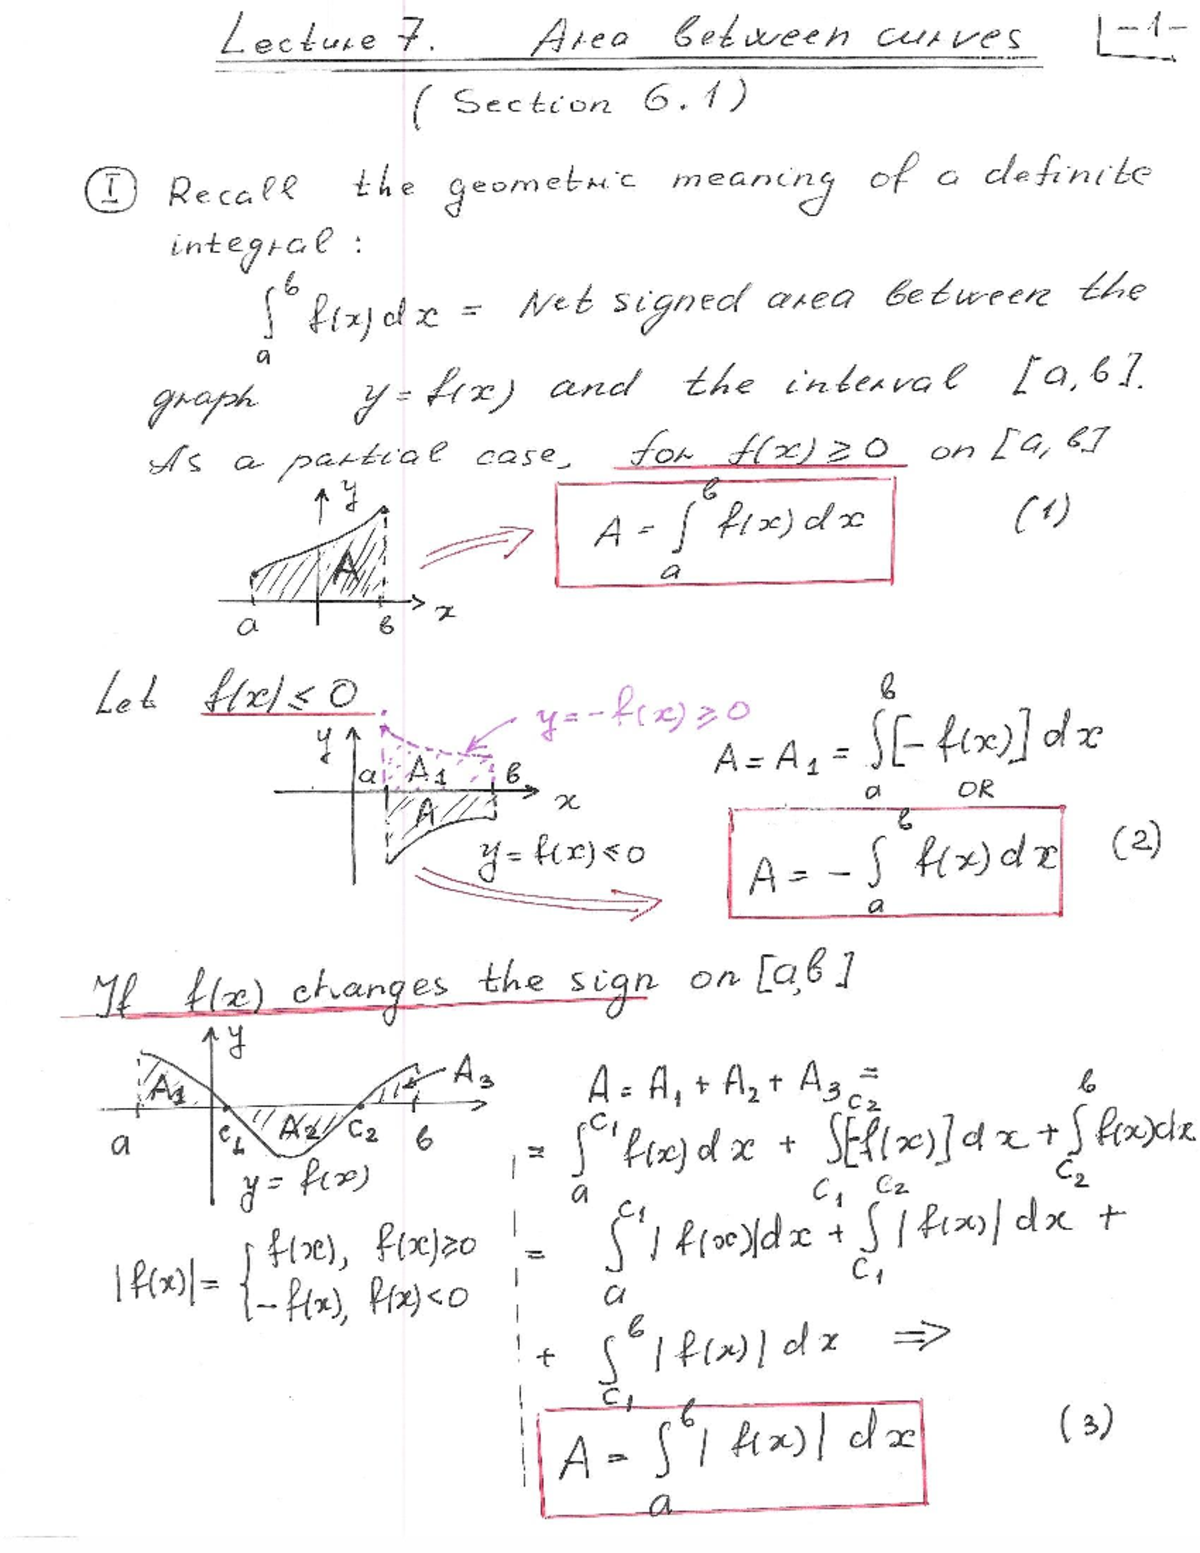 Lecture 7. Area between curves |-1-
(Section 6.1)
Ⓘ Recall the geometric meaning of a definite
integral:
∫_a^b f(x)dx = Net signed area between the
graph y = f(x) and the interval [a, b].
As a partial case, for f(x) ≥ 0 on [a, b]
y
A
a b x
A = ∫_a^b f(x)dx (1)
Let f(x) ≤ 0
y = -f(x) ≥ 0
y
a A₁ b
x
A
y = f(x) ≤ 0
A = A₁ = ∫_a^b [-f(x)]dx
OR
A = - ∫_a^b f(x)dx (2)
If f(x) changes the sign on [a,b]
y
A₁ A₂ A₃
a c₁ c₂ b
y = f(x)
|f(x)| = { f(x), f(x) ≥ 0
-f(x), f(x) < 0
A = A₁ + A₂ + A₃ =
= ∫_a^{c₁} f(x)dx + ∫_{c₁}^{c₂} [-f(x)]dx + ∫_{c₂}^b f(x)dx
= ∫_a^{c₁} |f(x)|dx + ∫_{c₁}^{c₂} |f(x)|dx +
+ ∫_{c₁}^b |f(x)|dx ⇒
A = ∫_a^b |f(x)|dx (3)